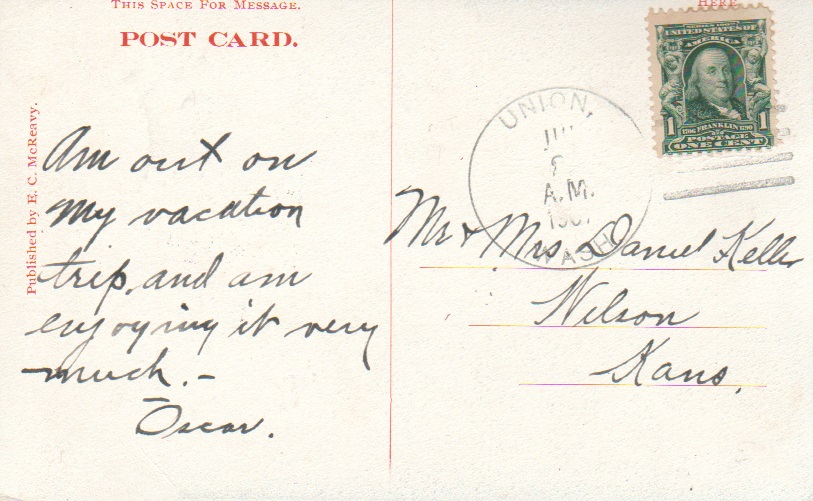 THIS SPACE FOR MESSAGE.
POST CARD.
Published by E. C. McReavy.
Am out on
my vacation
trip, and am
enjoying it very
much. -
Oscar.
HERE
SERIES 1902
UNITED STATES OF
AMERICA
1706 FRANKLIN 1790
1 POSTAGE 1
ONE CENT
UNION,
A.M.
WASH.
Mr & Mrs Daniel Keller
Wilson
Kans.